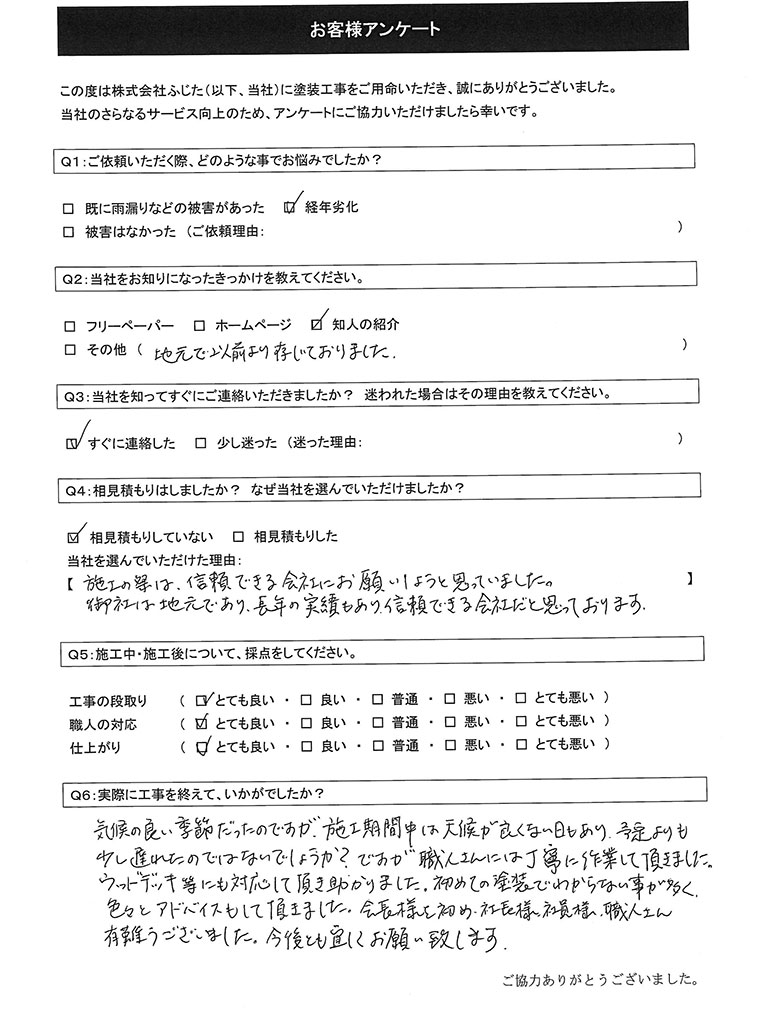 お客様アンケート
この度は株式会社ふじた(以下、当社)に塗装工事をご用命いただき、誠にありがとうございました。
当社のさらなるサービス向上のため、アンケートにご協力いただけましたら幸いです。
Q1:ご依頼いただく際、どのような事でお悩みでしたか?
□ 既に雨漏りなどの被害があった ☑ 経年劣化
□ 被害はなかった (ご依頼理由: )
Q2:当社をお知りになったきっかけを教えてください。
□ フリーペーパー □ ホームページ ☑ 知人の紹介
□ その他 ( 地元で以前より存じておりました. )
Q3:当社を知ってすぐにご連絡いただきましたか? 迷われた場合はその理由を教えてください。
☑ すぐに連絡した □ 少し迷った (迷った理由: )
Q4:相見積もりはしましたか? なぜ当社を選んでいただけましたか?
☑ 相見積もりしていない □ 相見積もりした
当社を選んでいただけた理由:
【 施工の際は、信頼できる会社にお願いしようと思っていました。 】
御社は地元であり、長年の実績もあり、信頼できる会社だと思っております.
Q5:施工中・施工後について、採点をしてください。
工事の段取り ( ☑ とても良い ・ □ 良い ・ □ 普通 ・ □ 悪い ・ □ とても悪い )
職人の対応 ( ☑ とても良い ・ □ 良い ・ □ 普通 ・ □ 悪い ・ □ とても悪い )
仕上がり ( ☑ とても良い ・ □ 良い ・ □ 普通 ・ □ 悪い ・ □ とても悪い )
Q6:実際に工事を終えて、いかがでしたか?
気候の良い季節だったのですが、施工期間中は天候が良くない日もあり、予定よりも
少し遅れたのではないでしょうか?ですが職人さんには丁寧に作業して頂きました。
ウッドデッキ等にも対応して頂き助かりました。初めての塗装でわからない事が多く、
色々とアドバイスもして頂きました。会長様を初め、社長様、社員様、職人さん
有難うございました。今後とも宜しくお願い致します.
ご協力ありがとうございました。